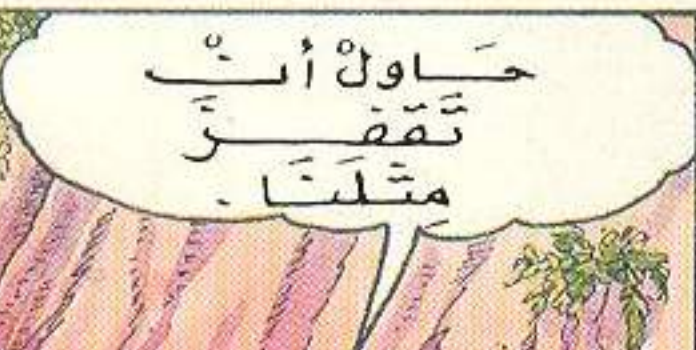 حَاولْ أنْ
تَقفزَ
مِثلَنَا .